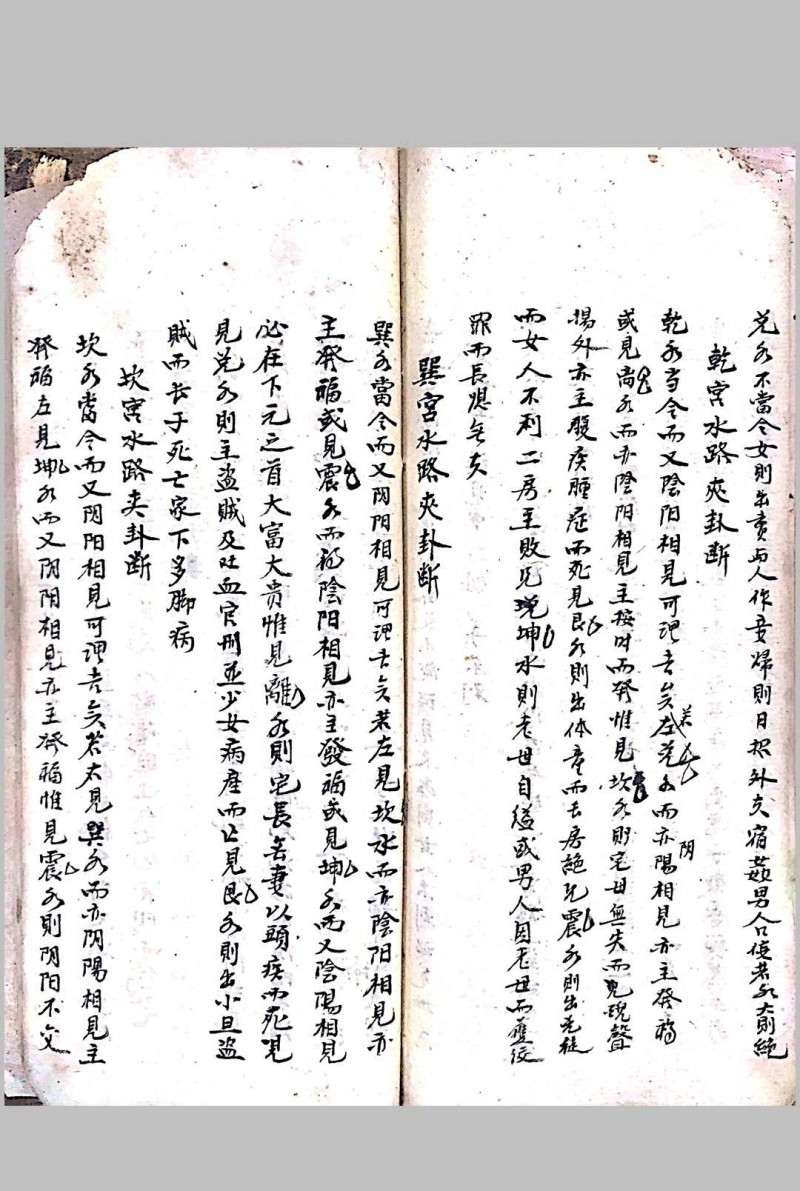 兑水不當令女則出賣与人作妾婦則日招外夫宿姦男人口使若水大則絶
乾宮水路夾卦断
乾水当令而又陰阳相見可謂吉矣若左兑水而亦阴陽相見亦主發福
或見离水而亦陰阳相見主按时而發惟見坎水則宅母無夫而醜聲
揚外亦主廢疾腫症而死見艮水則出体童而長房絶見震水則出
而女人不利二房主敗見巽坤水則老母自縊或男人因老母而獲絞
罪而長房無夫
巽宮水路夾卦断
巽水當令而又阴阳相見可謂吉矣若左見坎水而亦陰阳相見亦
主發福或見震水而亦陰阳相見亦主發福或見坤水而又陰陽相見
必在下元之首大富大贵惟見離水則宅長無妻以頭疾而死見
見兑水則主盗賊及吐血官刑並少女病産而亡見艮水則出小旦盗
賊而长子死亡家下多脚病
坎宮水路夾卦断
坎水當令而又阴阳相見可謂吉矣若右見巽水而亦阴陽相見主
發福左見坤水而又阴阳相見亦主發福惟見震水則阴阳不交